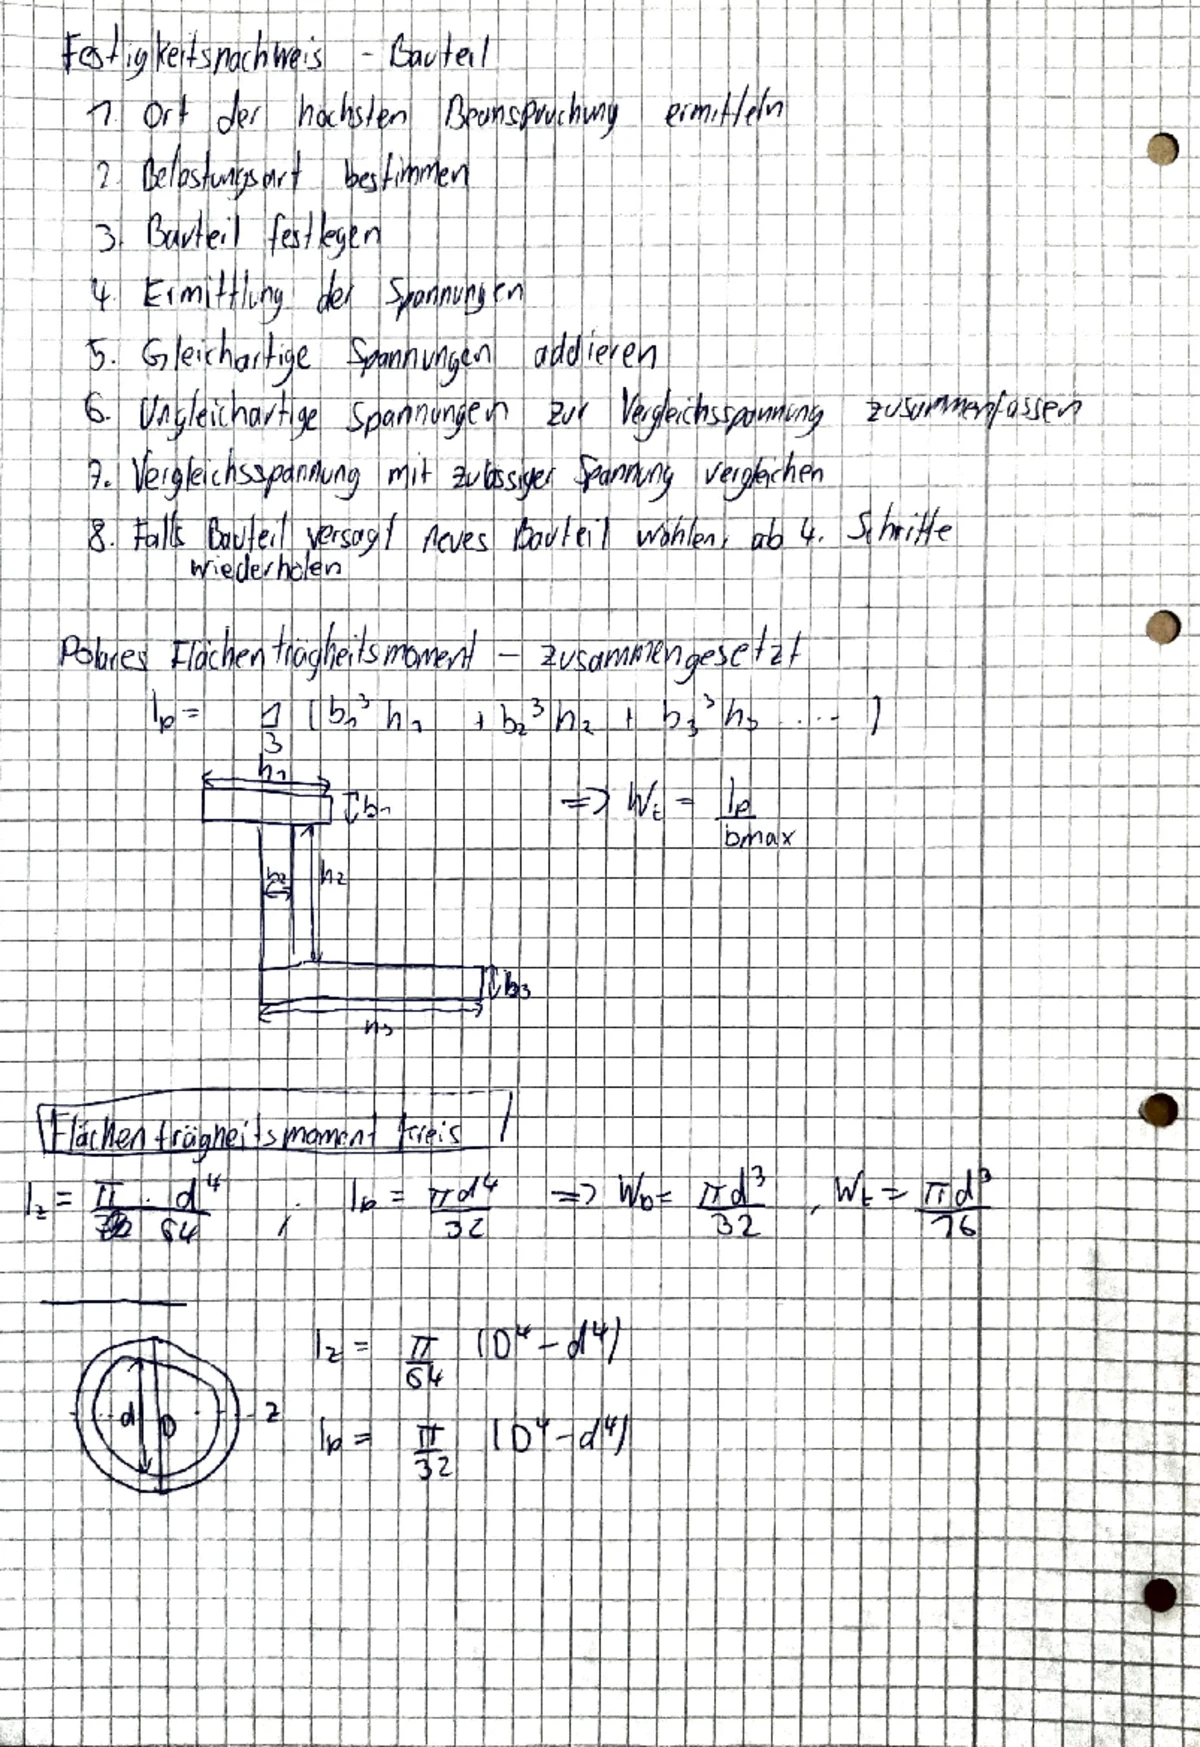 Festigkeitsnachweis - Bauteil
1. Ort der höchsten Beanspruchung ermitteln
2. Belastungsart bestimmen
3. Bauteil festlegen
4. Ermittlung der Spannungen
5. Gleichartige Spannungen addieren
6. Ungleichartige Spannungen zur Vergleichsspannung zusammenfassen
7. Vergleichsspannung mit zulässiger Spannung vergleichen
8. Falls Bauteil versagt neues Bauteil wählen, ab 4. Schritte
wiederholen
Polares Flächenträgheitsmoment - zusammengesetzt
Ip = 1/3 (b1³ h1 + b2³ h2 + b3³ h3 .... )
h1
b1
=> Wt = Ip/bmax
b2 h2
b3
h3
Flächenträgheitsmoment Kreis
Iz = π · d⁴/64 , Ip = πd⁴/32 => Wb = πd³/32 , Wt = πd³/16
Iz = π/64 (D⁴ - d⁴)
d D z
Ip = π/32 (D⁴ - d⁴)